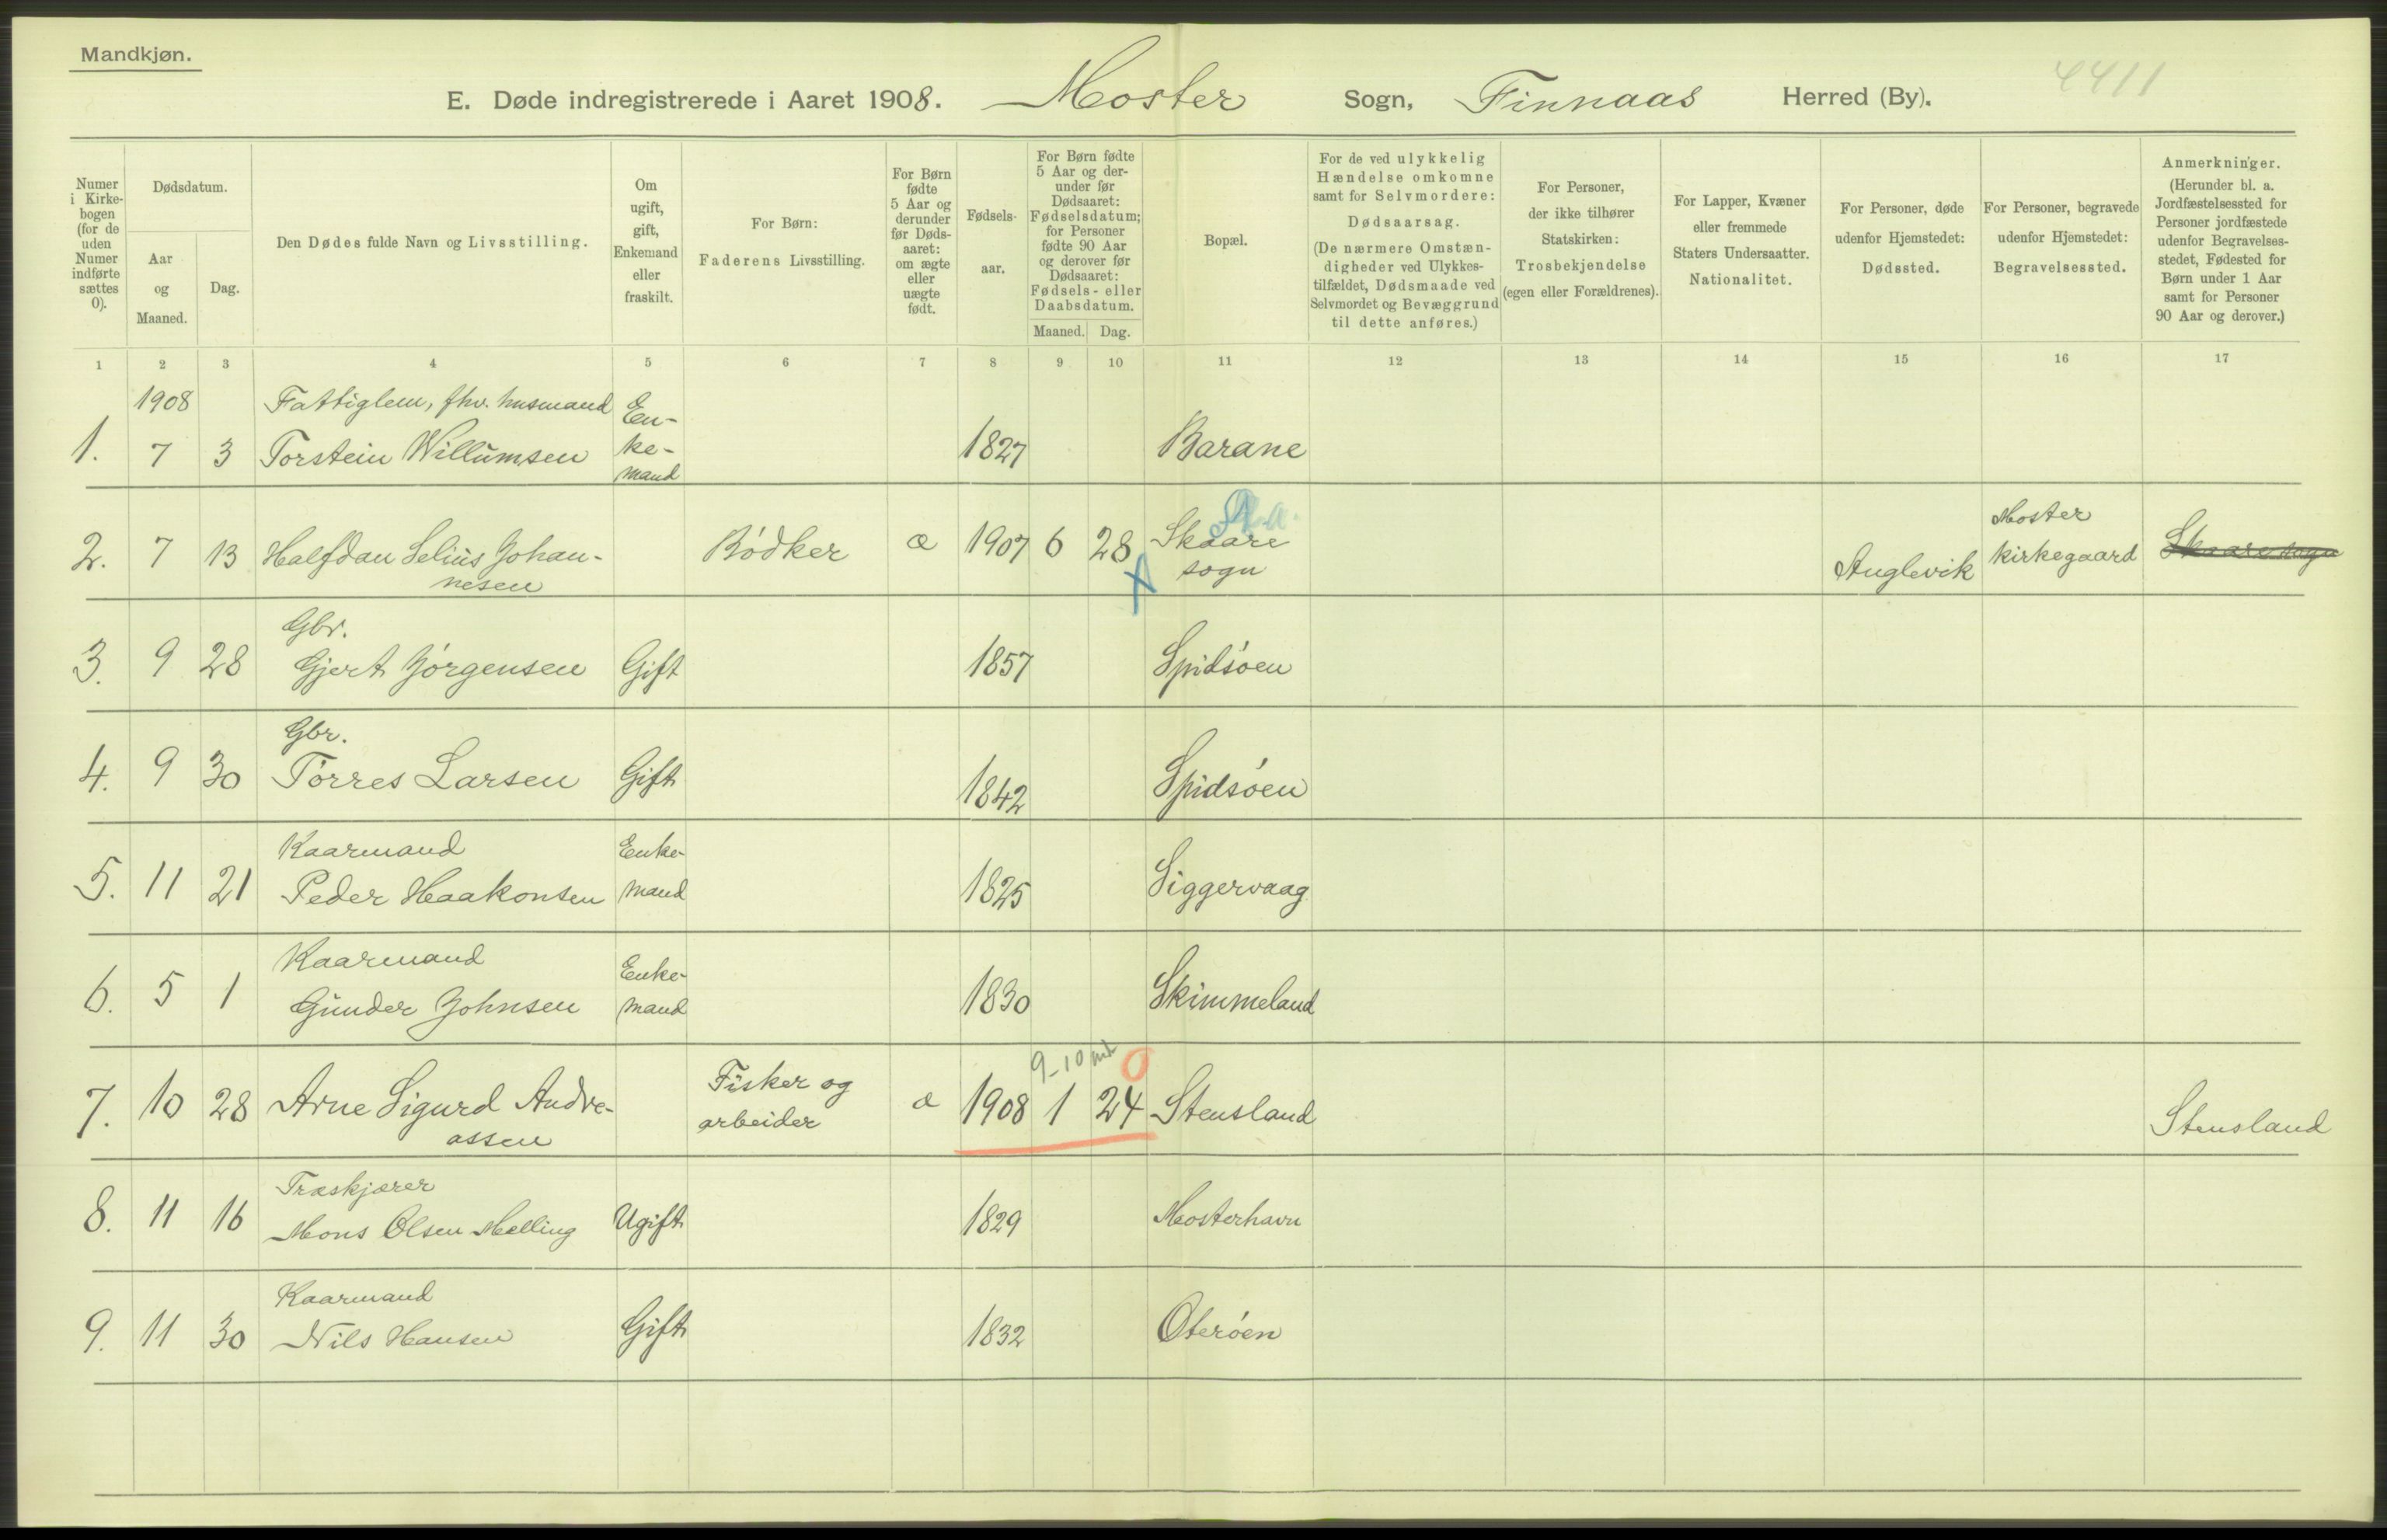 Mandkjøn.
E. Døde indregistrerede i Aaret 1908. Moster Sogn, Finnaas Herred (By).
4411
Numer
i Kirke-
bogen
(for de
uden
Numer
indførte
sættes
0).
Dødsdatum.
Aar
og
Maaned.
Dag.
Den Dødes fulde Navn og Livsstilling.
Om
ugift,
gift,
Enkemand
eller
fraskilt.
For Børn:
Faderens Livsstilling.
For Børn
fødte
5 Aar og
derunder
før Døds-
aaret:
om ægte
eller
uægte
født.
Fødsels-
aar.
For Børn fødte
5 Aar og der-
under før
Dødsaaret:
Fødselsdatum;
for Personer
fødte 90 Aar
og derover før
Dødsaaret:
Fødsels- eller
Daabsdatum.
Maaned. Dag.
Bopæl.
For de ved ulykkelig
Hændelse omkomne
samt for Selvmordere:
Dødsaarsag.
(De nærmere Omstæn-
digheder ved Ulykkes-
tilfældet, Dødsmaade ved
Selvmordet og Bevæggrund
til dette anføres.)
For Personer,
der ikke tilhører
Statskirken:
Trosbekjendelse
(egen eller Forældrenes).
For Lapper, Kvæner
eller fremmede
Staters Undersaatter.
Nationalitet.
For Personer, døde
udenfor Hjemstedet:
Dødssted.
For Personer, begravede
udenfor Hjemstedet:
Begravelsessted.
Anmerkninger.
(Herunder bl. a.
Jordfæstelsessted for
Personer jordfæstede
udenfor Begravelses-
stedet, Fødested for
Børn under 1 Aar
samt for Personer
90 Aar og derover.)
1 2 3 4 5 6 7 8 9 10 11 12 13 14 15 16 17
1908 Fattiglem, fhv. husmand En-
1. 7 3 Torstein Willumsen ke- 1827 Barane
mand
Moster
2. 7 13 Halfdan Selius Johan- Bödker æ 1907 6 28 Skaare Auglevik kirkegaard Skaare sogn
nesen sogn
Gbr.
3. 9 28 Gjert Jörgensen Gift 1857 Spidsöen
Gbr.
4. 9 30 Törres Larsen Gift 1842 Spidsöen
Kaarmand Enke-
5. 11 21 Peder Haakonsen mand 1825 Siggervaag
Kaarmand Enke-
6. 5 1 Gunder Johnsen mand 1830 Skimmeland
9-10 mt 0
Fisker og
7. 10 28 Arne Sigurd Andre- arbeider æ 1908 1 24 Stensland Stensland
assen
Træskjærer
8. 11 16 Mons Olsen Mælling Ugift 1829 Mosterhavn
Kaarmand
9. 11 30 Nils Hansen Gift 1832 Oteröen